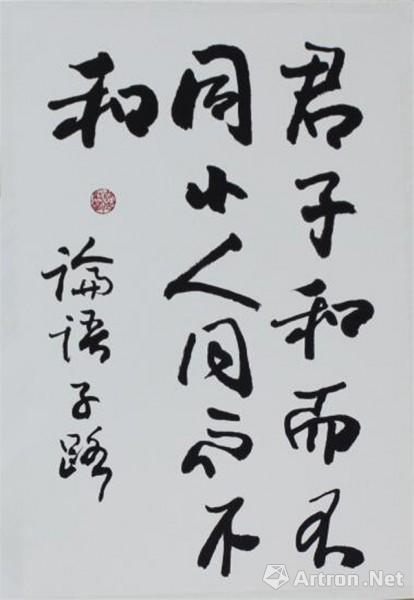 君子和而不
同小人同而不
和
論语子路
Artron.Net